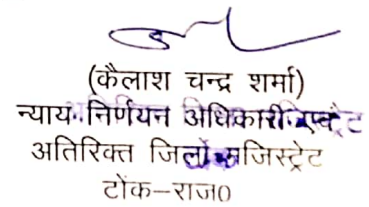 (कैलाश चन्द्र शर्मा)
न्याय निर्णयन अधिकारी एवं
अतिरिक्त जिला मजिस्ट्रेट
टोंक–राज0